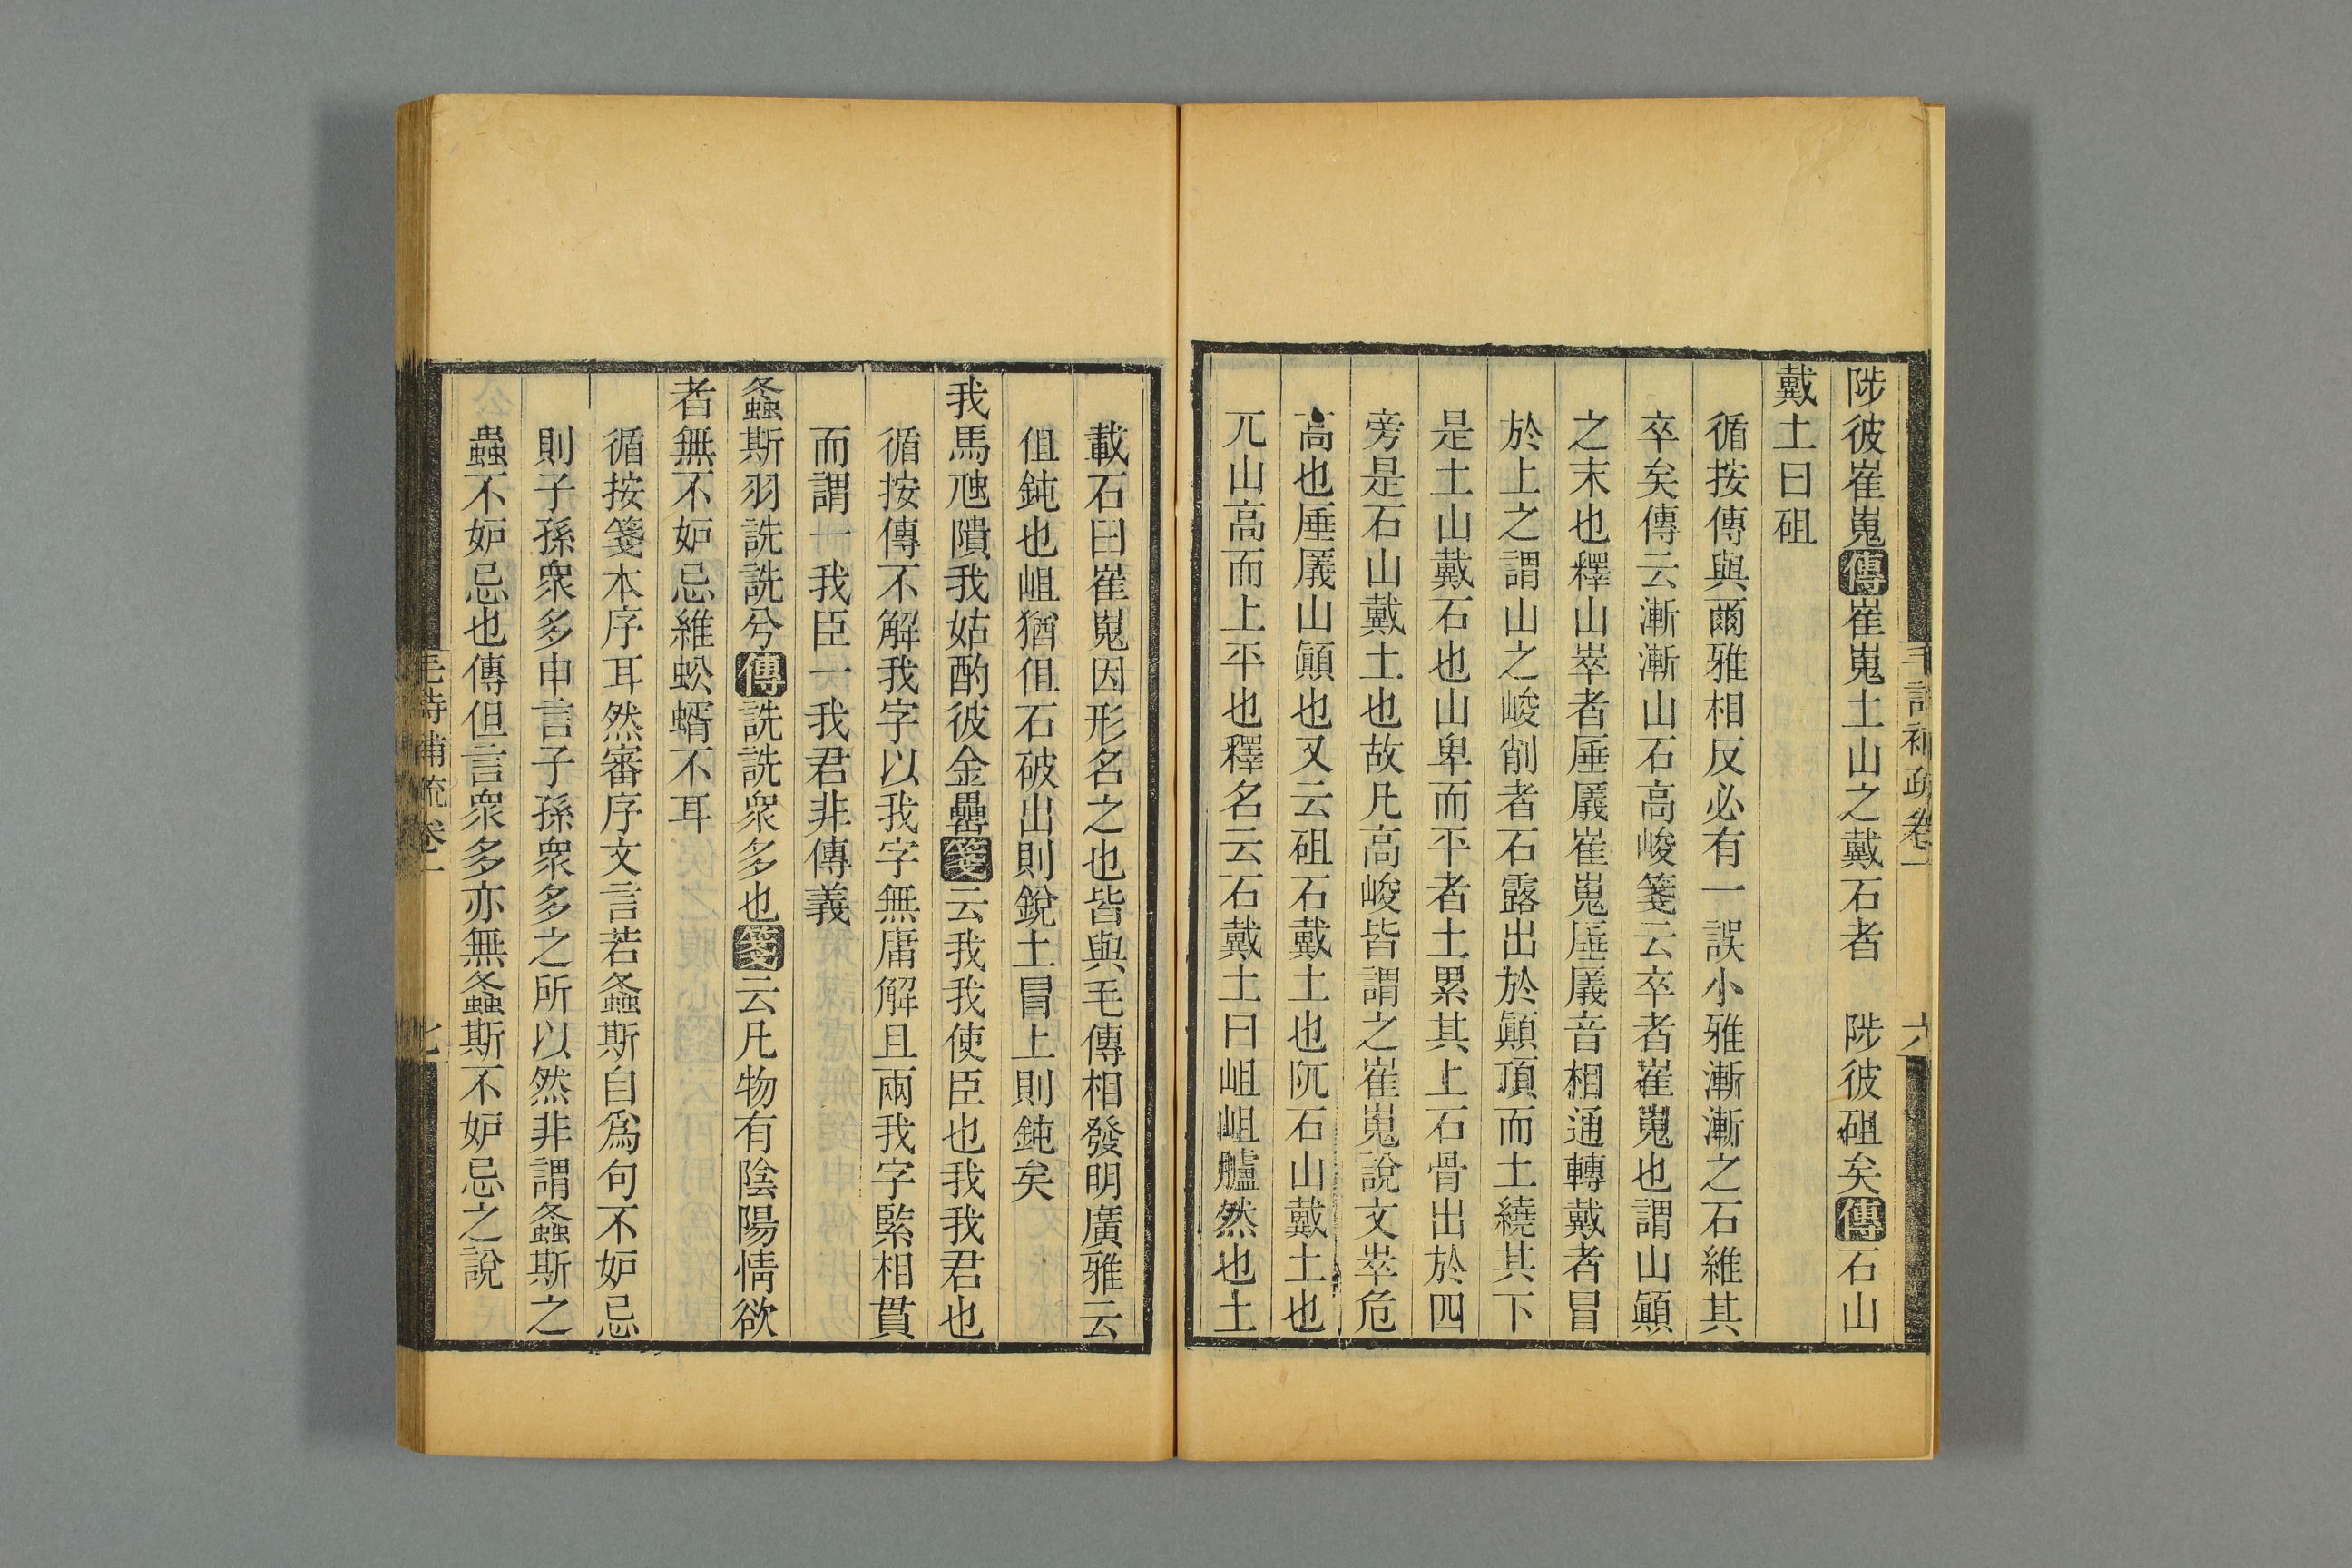 陟彼崔嵬傳崔嵬土山之戴石者　陟彼砠矣傳石山
戴土曰砠
循按傳與爾雅相反必有一誤小雅漸漸之石維其
卒矣傳云漸漸山石高峻箋云卒者崔嵬也謂山顚
之末也釋山崒者厜㕒崔嵬厜㕒音相通轉戴者冒
於上之謂山之峻削者石露出於顚頂而土繞其下
是土山戴石也山卑而平者土累其上石骨出於四
旁是石山戴土也故凡高峻皆謂之崔嵬說文崒危
高也厜㕒山顚也又云砠石戴土也阮石山戴土也
兀山高而上平也釋名云石戴土曰岨岨臚然也土
載石曰崔嵬因形名之也皆與毛傳相發明廣雅云
伹鈍也岨猶伹石破出則銳土冒上則鈍矣
我馬虺隤我姑酌彼金罍箋云我我使臣也我我君也
循按傳不解我字以我字無庸解且兩我字緊相貫
而謂一我臣一我君非傳義
螽斯羽詵詵兮傳詵詵衆多也箋云凡物有陰陽情欲
者無不妒忌維蚣蝑不耳
循按箋本序耳然審序文言若螽斯自爲句不妒忌
則子孫衆多申言子孫衆多之所以然非謂螽斯之
蟲不妒忌也傳但言衆多亦無螽斯不妒忌之說
毛詩補疏卷一
七